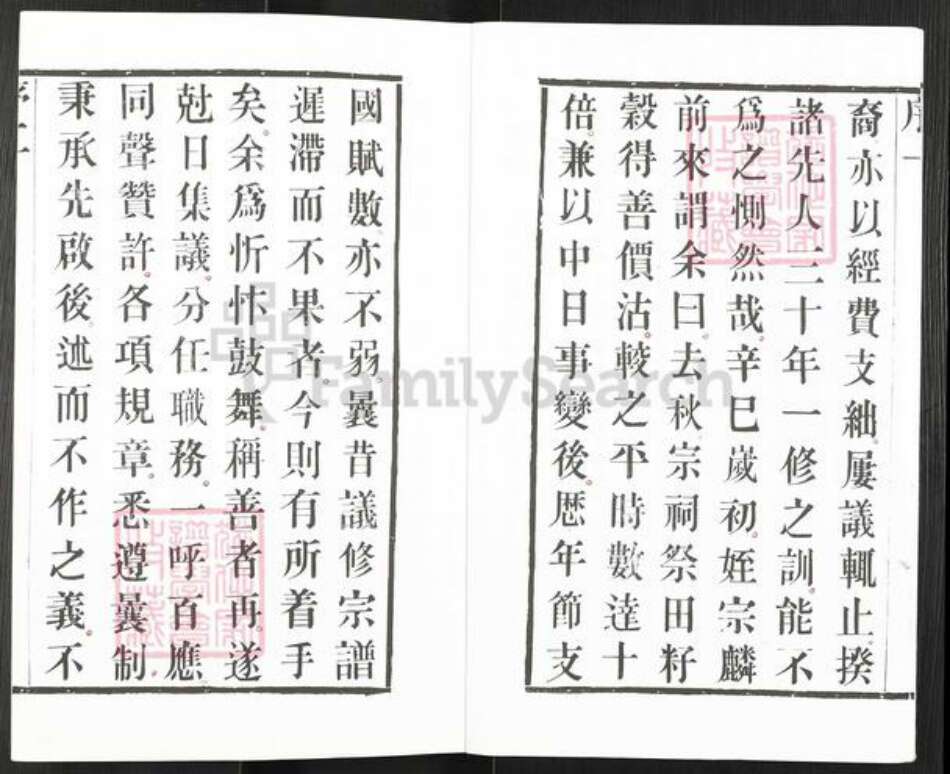 序一
裔亦以經費支絀屢議輒止揆
諸先人三十年一修之訓能不
爲之惻然哉辛巳歲初姪宗麟
前來謂余曰去秋宗祠祭田籽
穀得善價沽較之平時數達十
倍兼以中日事變後歷年節支
國賦數亦不弱曩昔議修宗譜
遲滯而不果者今則有所着手
矣余爲忻忭鼓舞稱善者再遂
尅日集議分任職務一呼百應
同聲贊許各項規章悉遵曩制
秉承先啟後述而不作之義不
FamilySearch